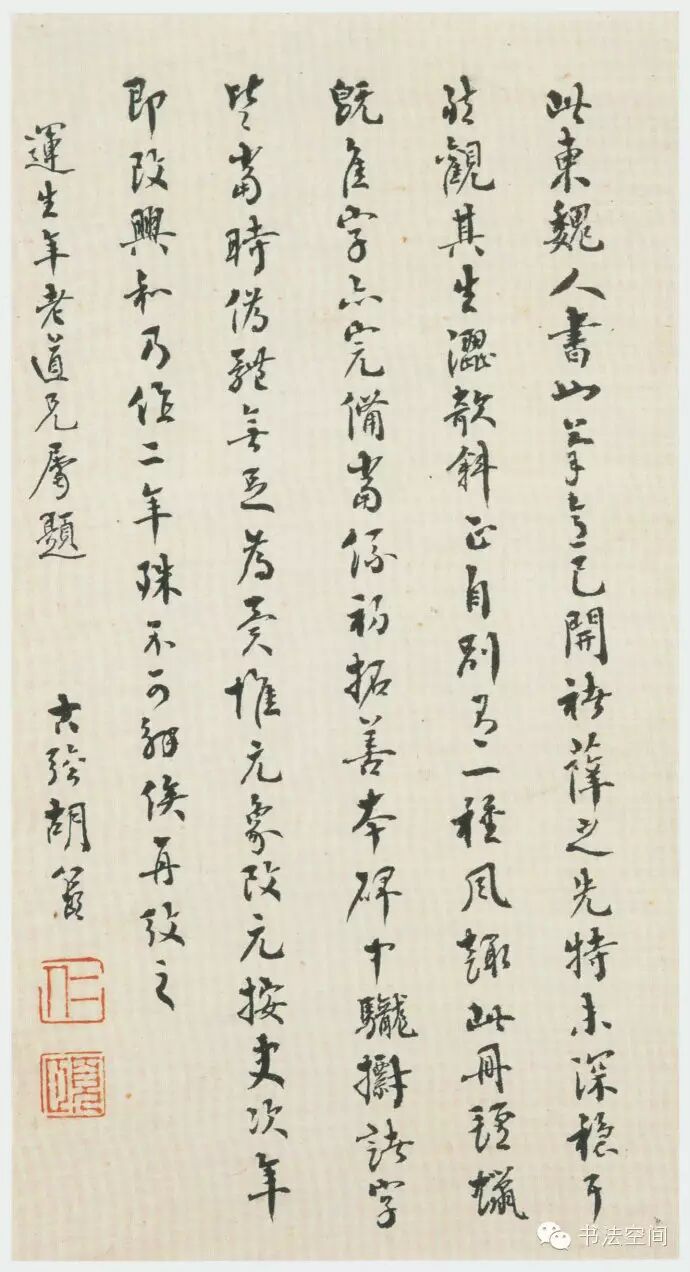 此東魏人書筆意已開褚薛之先特未深穩耳
然觀其生澀欹斜正自別有一種風趣此冊氈蠟
既佳字亦完備當係初拓善本碑中諸字
皆當時體無足為異惟元象改元按史次年
即改興和乃作二年殊不可解俟再攷之
運生年老道兄屬題 古胡
书法空间